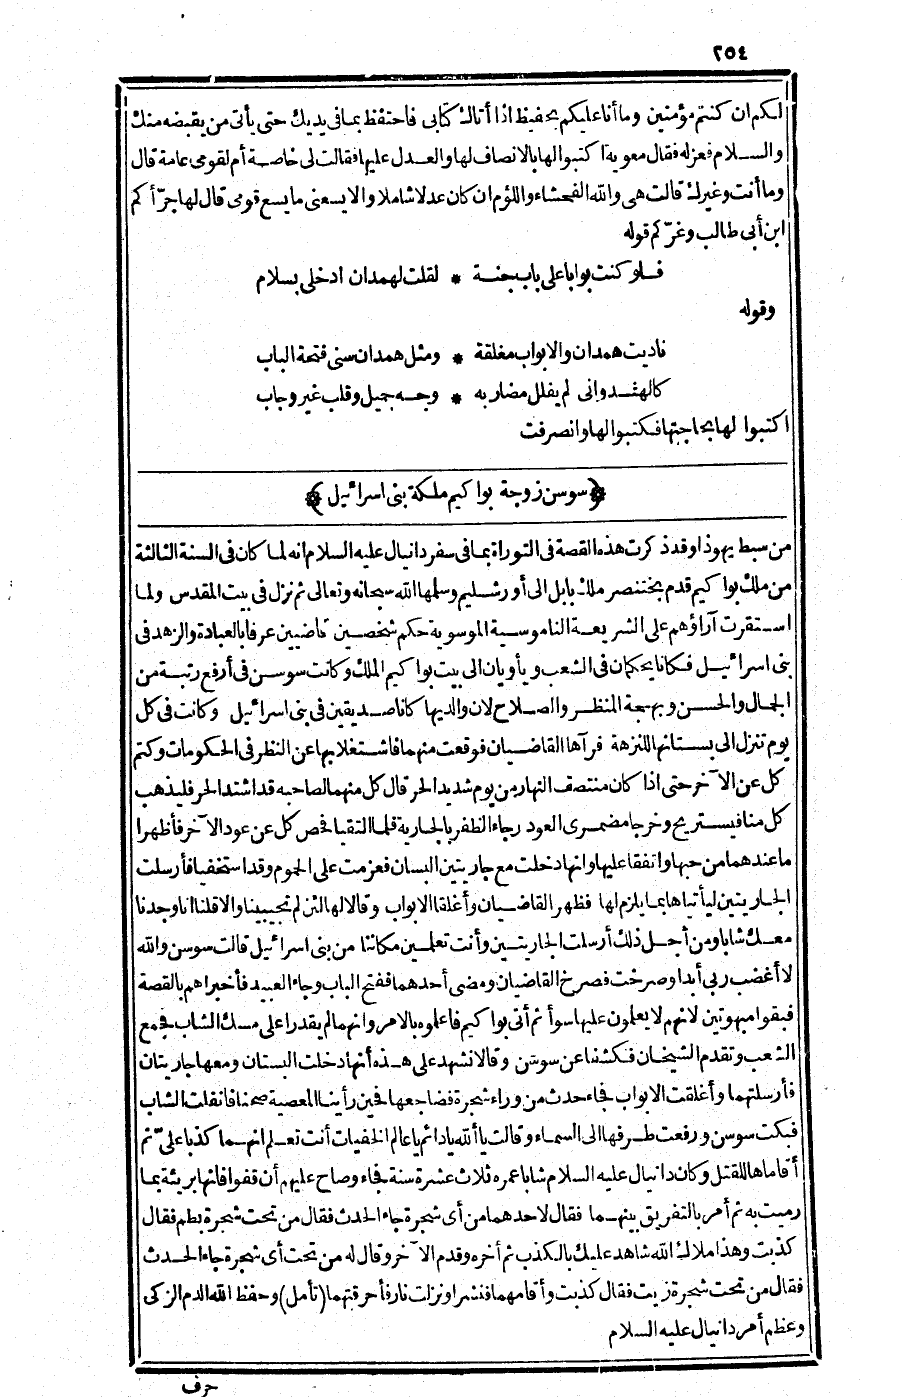 ٢٥٤
لكم ان كنتم مؤمنين وما أنا عليكم بحفيظ اذا أتاك كتابى فاحتفظ بما فى يديك حتى يأتى من يقبضه منك
والسلام فعزله فقال معوية اكتبوا لها بالانصاف لها والعدل عليها فقالت لى خاصة أم لقومى عامة قال
وما أنت وغيرك قالت هى والله الفحشاء واللؤم ان كان عدلا شاملا والا يسعنى ما يسع قومى قال لها جرّأكم
ابن أبى طالب وغرّكم قوله
فلو كنت بوابا على باب جنة * لقلت لهمدان ادخلى بسلام
وقوله
ناديت همدان والابواب مغلقة * ومثل همدان سنى فتحة الباب
كالهندوانى لم يفلل مضاربه * وجه جميل وقلب غير وجاب
اكتبوا لها بحاجتها فكتبوا لها وانصرفت
﴿سوسن زوجة يواكيم ملكة بنى اسرائيل﴾
من سبط يهوذا وقد ذكرت هذه القصة فى التوراة بما فى سفر دانيال عليه السلام انه لما كان فى السنة الثالثة
من ملك يواكيم قدم بختنصر ملك بابل الى أورشليم وسلمها الله سبحانه وتعالى ثم نزل فى بيت المقدس ولما
استقرت آراؤهم على الشريعة الناموسية الموسوية حكم شخصين قاضيين عرفا بالعبادة والزهد فى
بنى اسرائيل فكانا يحكمان فى الشعب ويأويان الى بيت يواكيم الملك وكانت سوسن فى أرفع رتبة من
الجمال والحسن وبهجة المنظر والصلاح لان والديها كانا صديقين فى بنى اسرائيل وكانت فى كل
يوم تنزل الى بستانها للنزهة فرآها القاضيان فوقعت منهما فاشتغلا بها عن النظر فى الحكومات وكتم
كل عن الآخر حتى اذا كان منتصف النهار من يوم شديد الحر قال كل منهما لصاحبه قد اشتد الحر فليذهب
كل منا فيستريح وخرجا مضمرى العود رجاء الظفر بالجارية فلما التقيا فحص كل عن عود الآخر فأظهرا
ما عندهما من حبها واتفقا عليها وانها دخلت مع جاريتين البستان فعزمت على الحموم وقد استخفيا فأرسلت
الجاريتين ليأتياها بما يلزم لها فظهر القاضيان وأغلقا الابواب وقالا لها لئن لم تجيبينا والا قلنا انا وجدنا
معك شابا ومن أجل ذلك أرسلت الجاريتين وأنت تعلمين مكانتنا من بنى اسرائيل قالت سوسن والله
لا أغضب ربى أبدا وصرخت فصرخ القاضيان ومضى أحدهما ففتح الباب وجاء العبيد فأخبراهم بالقصة
فبقوا مبهوتين لانهم لا يعلمون عليها سوأ ثم أتى يواكيم فاعلموه بالامر وانهما لم يقدرا على مسك الشاب فجمع
الشعب وتقدم الشيخان فكشفا عن سوسن وقالا نشهد على هذه أنها دخلت البستان ومعها جاريتان
فأرسلتهما وأغلقت الابواب فجاء حدث من وراء شجرة فضاجعها فحين رأينا المعصية صحنا فانفلت الشاب
فبكت سوسن ورفعت طرفها الى السماء وقالت يا ألله يا دائم يا عالم الخفيات أنت تعلم انهما كذبا علىّ ثم
أقاماها للقتل وكان دانيال عليه السلام شابا عمره ثلاث عشرة سنة فجاء وصاح عليهم أن قفوا فانها بريئة مما
رميت به ثم أمر بالتفريق بينهما فقال لاحدهما من أى شجرة جاء الحدث فقال من تحت شجرة بطم فقال
كذبت وهذا ملاك الله شاهد عليك بالكذب ثم أخره وقدم الآخر وقال له من تحت أى شجرة جاء الحدث
فقال من تحت شجرة زيت فقال كذبت وأقامهما فنشرا ونزلت نار فأحرقتهما (تأمل) وحفظ الله الدم الزكى
وعظم أمر دانيال عليه السلام
حرف